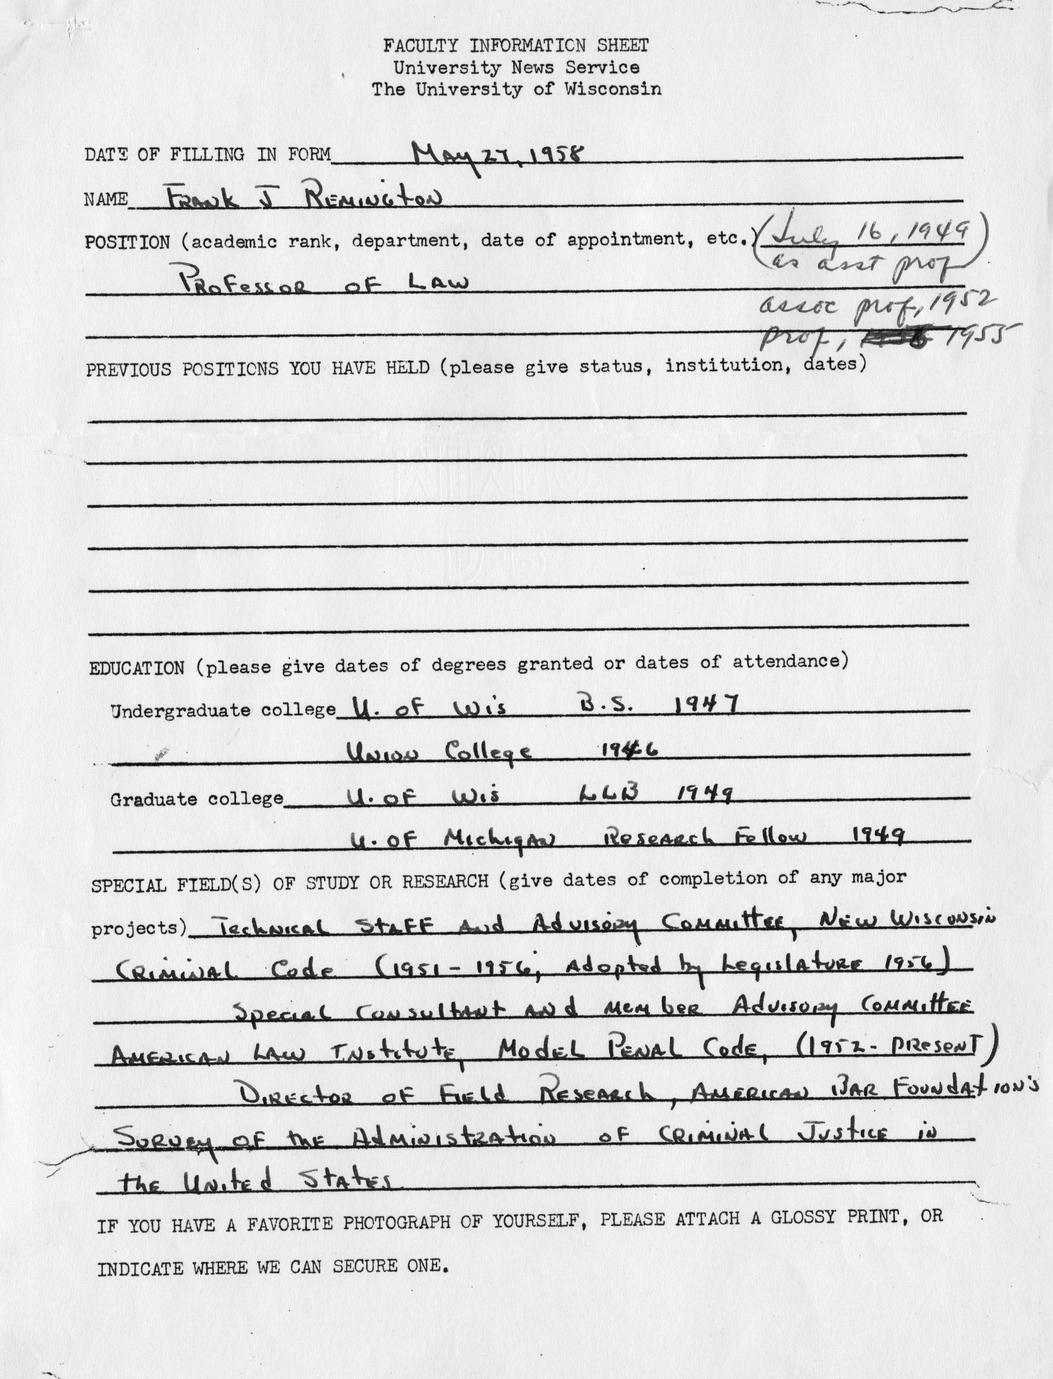 FACULTY INFORMATION SHEET
University News Service
The University of Wisconsin
DATE OF FILLING IN FORM May 27, 1958
NAME Frank J Remington
POSITION (academic rank, department, date of appointment, etc.) (July 16, 1949
as asst prof)
Professor of Law
assoc prof, 1952
prof, 1955
PREVIOUS POSITIONS YOU HAVE HELD (please give status, institution, dates)
EDUCATION (please give dates of degrees granted or dates of attendance)
Undergraduate college U. of Wis B.S. 1947
Union College 1946
Graduate college U. of Wis LLB 1949
U. of Michigan Research Fellow 1949
SPECIAL FIELD(S) OF STUDY OR RESEARCH (give dates of completion of any major
projects) Technical Staff and Advisory Committee, New Wisconsin
Criminal Code (1951-1956; adopted by Legislature 1956)
Special Consultant and member Advisory Committee
American Law Institute, Model Penal Code, (1952-present)
Director of Field Research, American Bar Foundation's
Survey of the Administration of Criminal Justice in
the United States
IF YOU HAVE A FAVORITE PHOTOGRAPH OF YOURSELF, PLEASE ATTACH A GLOSSY PRINT, OR
INDICATE WHERE WE CAN SECURE ONE.